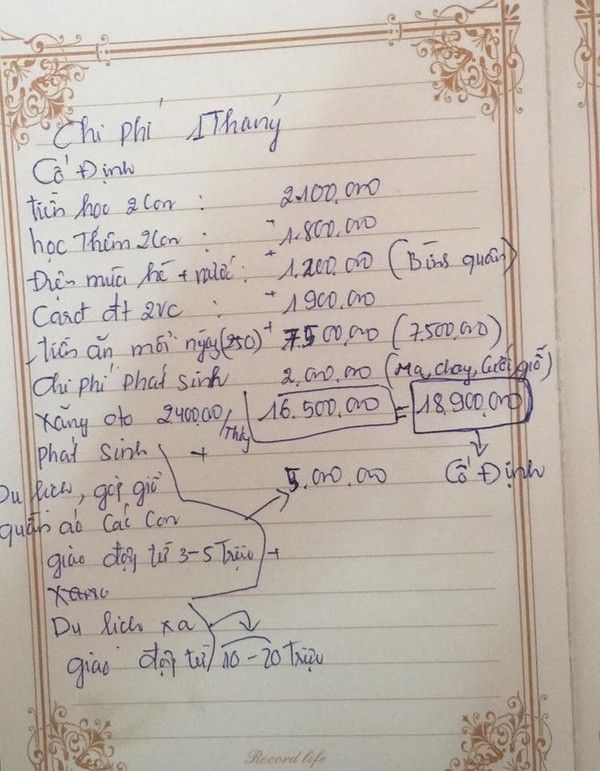 Chi phí 1 Tháng
Cố Định
tiền học 2 con : 2.100.000
học Thêm 2 con : + 1.800.000
Điện mùa hè + nước : + 1.200.000 (Bình quân)
Card đt 2VC : + 1 900.000
tiền ăn mỗi ngày (250) + 7500.000 (7.500.000)
Chi phí phát sinh 2.000.000 (Ma, chay, cưới, giỗ)
xăng oto 240000/Tháng 16.500.000 = 18.900.000
phát sinh +
Du lịch, gửi giỗ 5.000.000 Cố Định
quần áo Các Con
giao động từ 3-5 Triệu +
Du lịch xa
giao động từ 10-20 Triệu
Record life